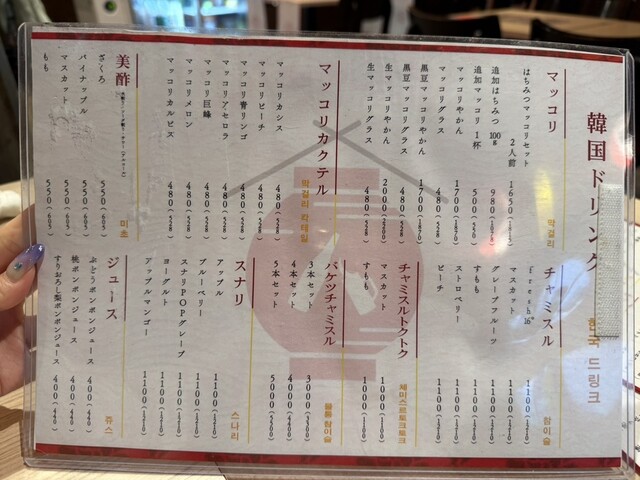 韓国ドリンク 한국 드링크
マッコリ 막걸리
はちみつマッコリセット 2人前 1650(1815)
追加はちみつ 100g 980(1078)
追加マッコリ 1杯 500(550)
マッコリやかん 1700(1870)
マッコリグラス 480(528)
黒豆マッコリやかん 1700(1870)
黒豆マッコリグラス 480(528)
生マッコリやかん 2000(2200)
生マッコリグラス 480(528)
マッコリカクテル 막걸리 칵테일
マッコリカシス 480(528)
マッコリピーチ 480(528)
マッコリ青リンゴ 480(528)
マッコリアセロラ 480(528)
マッコリ巨峰 480(528)
マッコリメロン 480(528)
マッコリカルピス 480(528)
美酢 미초
ざくろ 550(605)
パイナップル 550(605)
マスカット 550(605)
もも 550(605)
チャミスル 참이슬
fresh16° 1100(1210)
マスカット 1100(1210)
グレープフルーツ 1100(1210)
すもも 1100(1210)
ストロベリー 1100(1210)
ピーチ 1100(1210)
チャミスルトクトク
マスカット 1000(1100)
すもも 1000(1100)
バケツチャミスル
3本セット 3000(3300)
4本セット 4000(4400)
5本セット 5000(5500)
スナリ 스나리
アップル 1100(1210)
ブルーベリー 1100(1210)
スナリPOPグレープ 1100(1210)
ヨーグルト 1100(1210)
アップルマンゴー 1100(1210)
ジュース 쥬스
ぶどうボンボンジュース 400(440)
桃ボンボンジュース 400(440)
すりおろし梨ボンボンジュース 400(440)